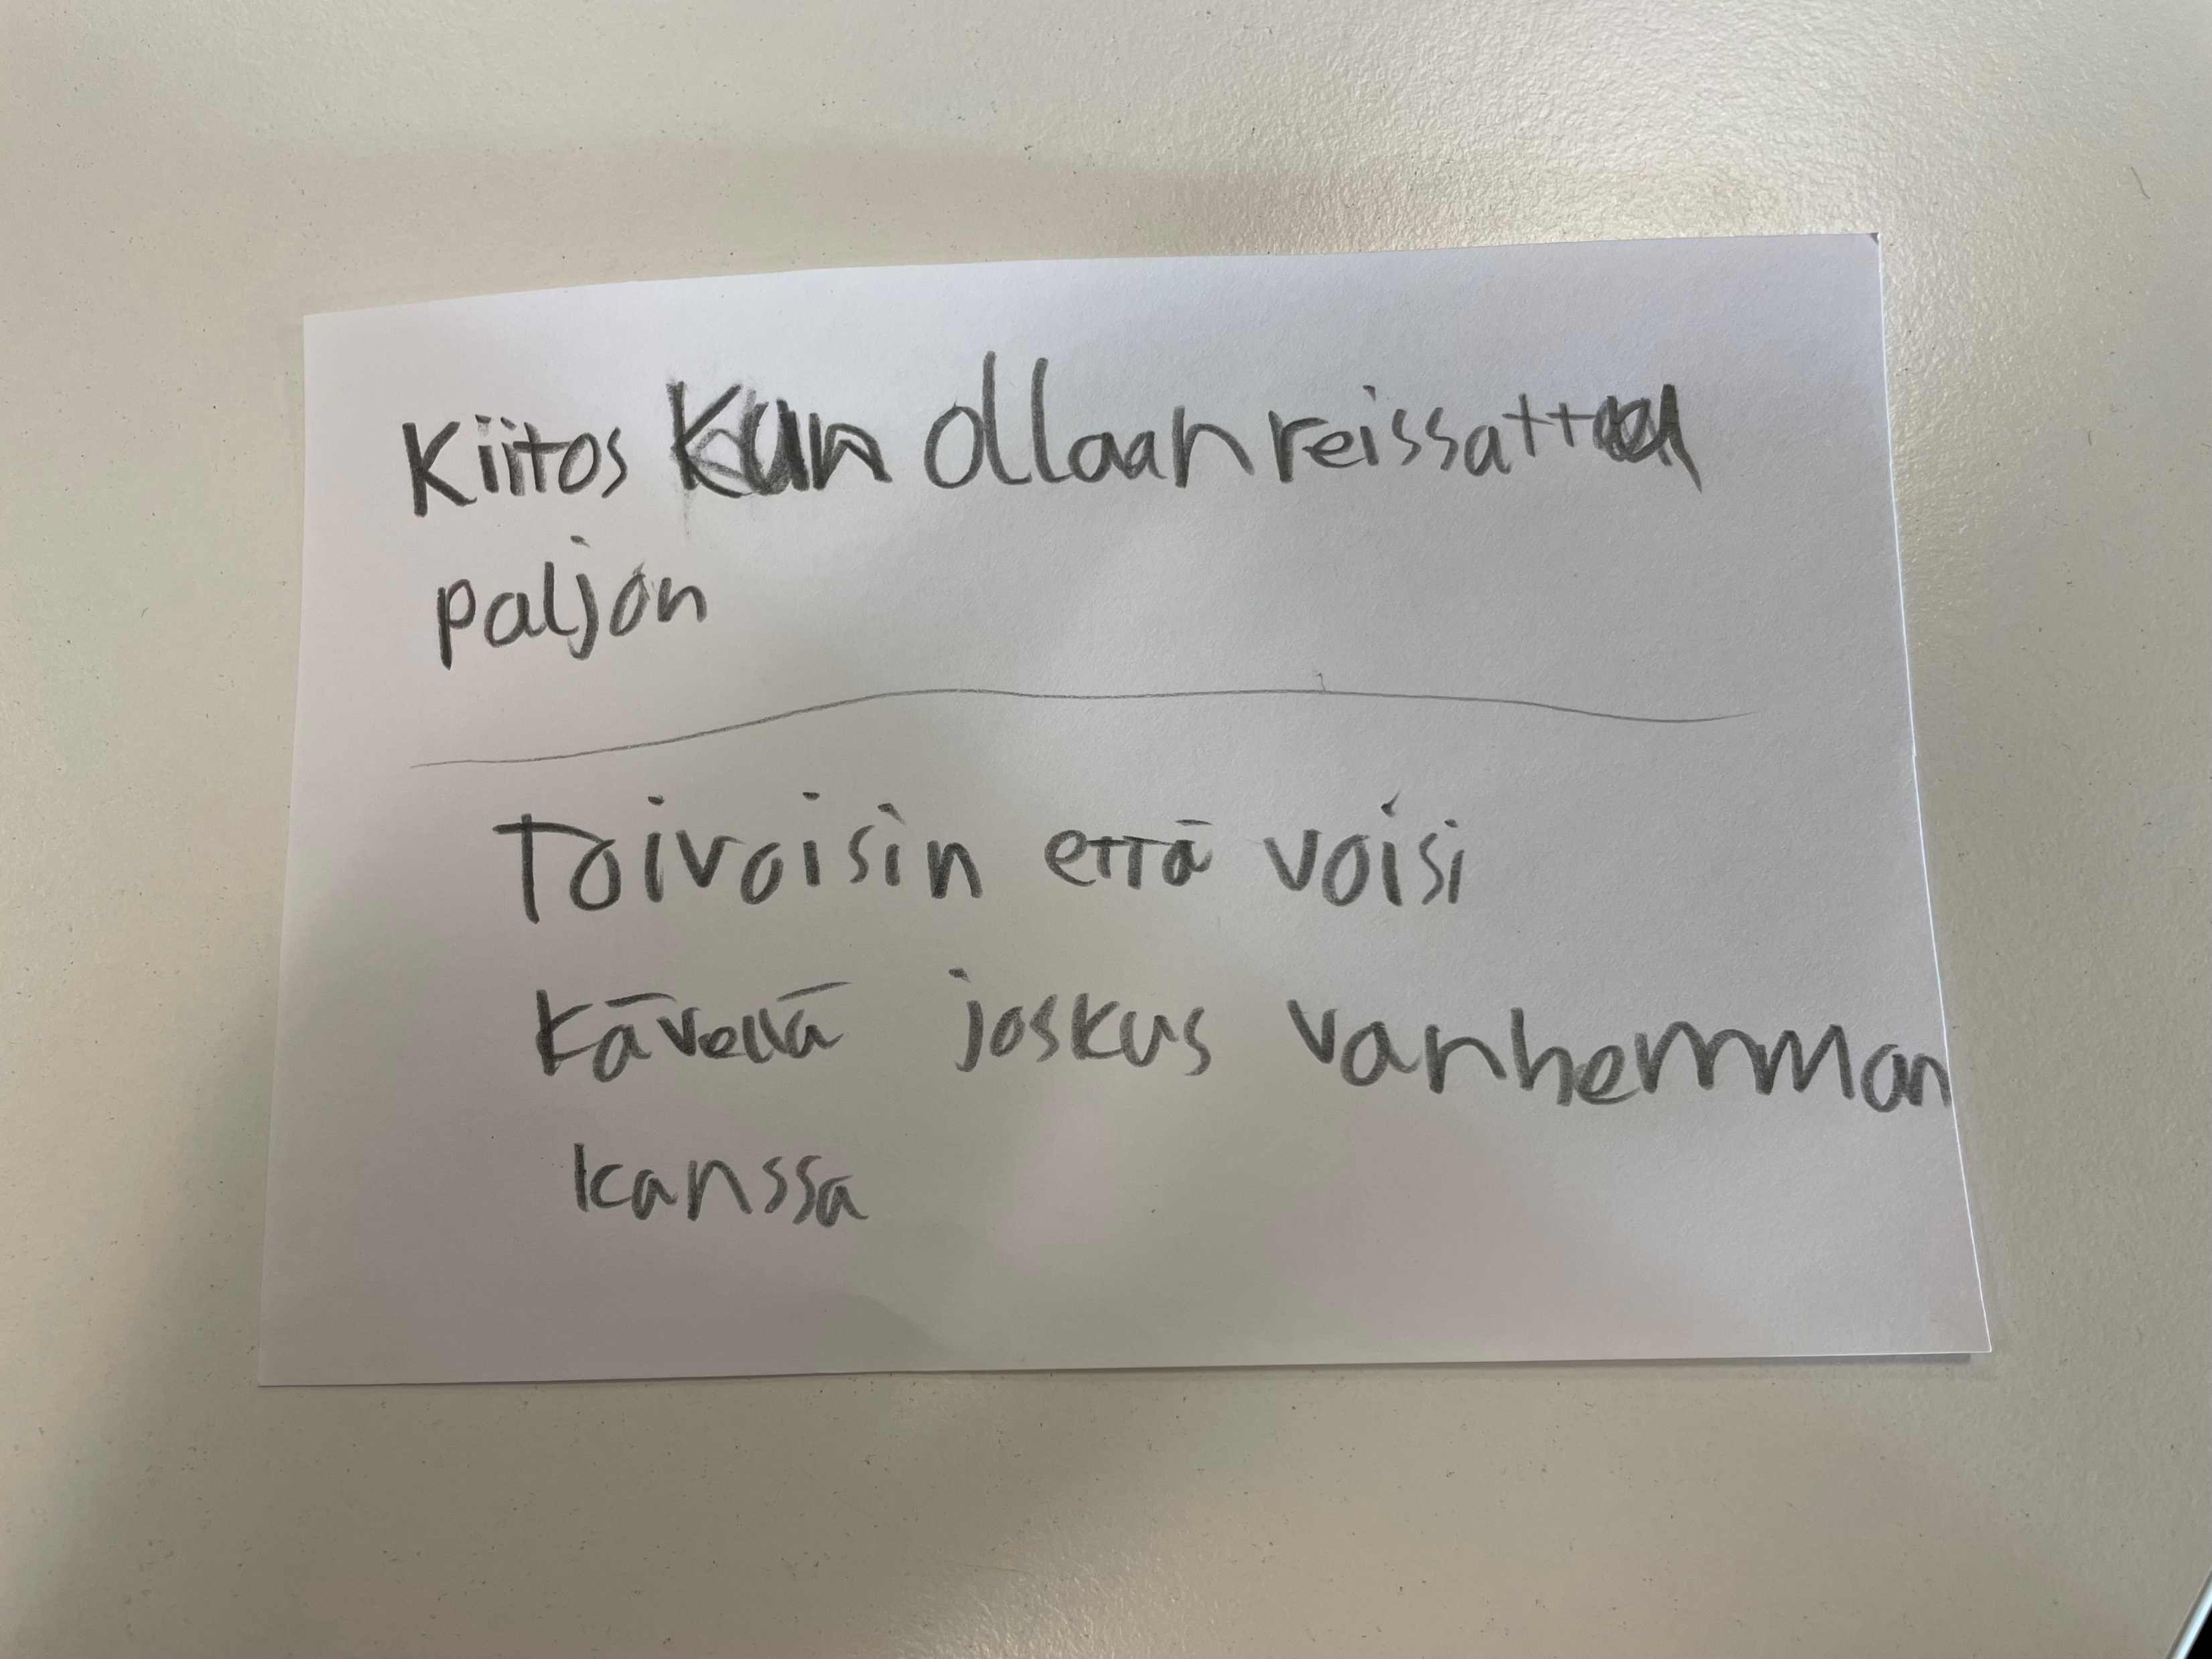 Kiitos Kun ollaan reissattu
paljon
Toivoisin että voisi
kävellä joskus vanhemman
kanssa